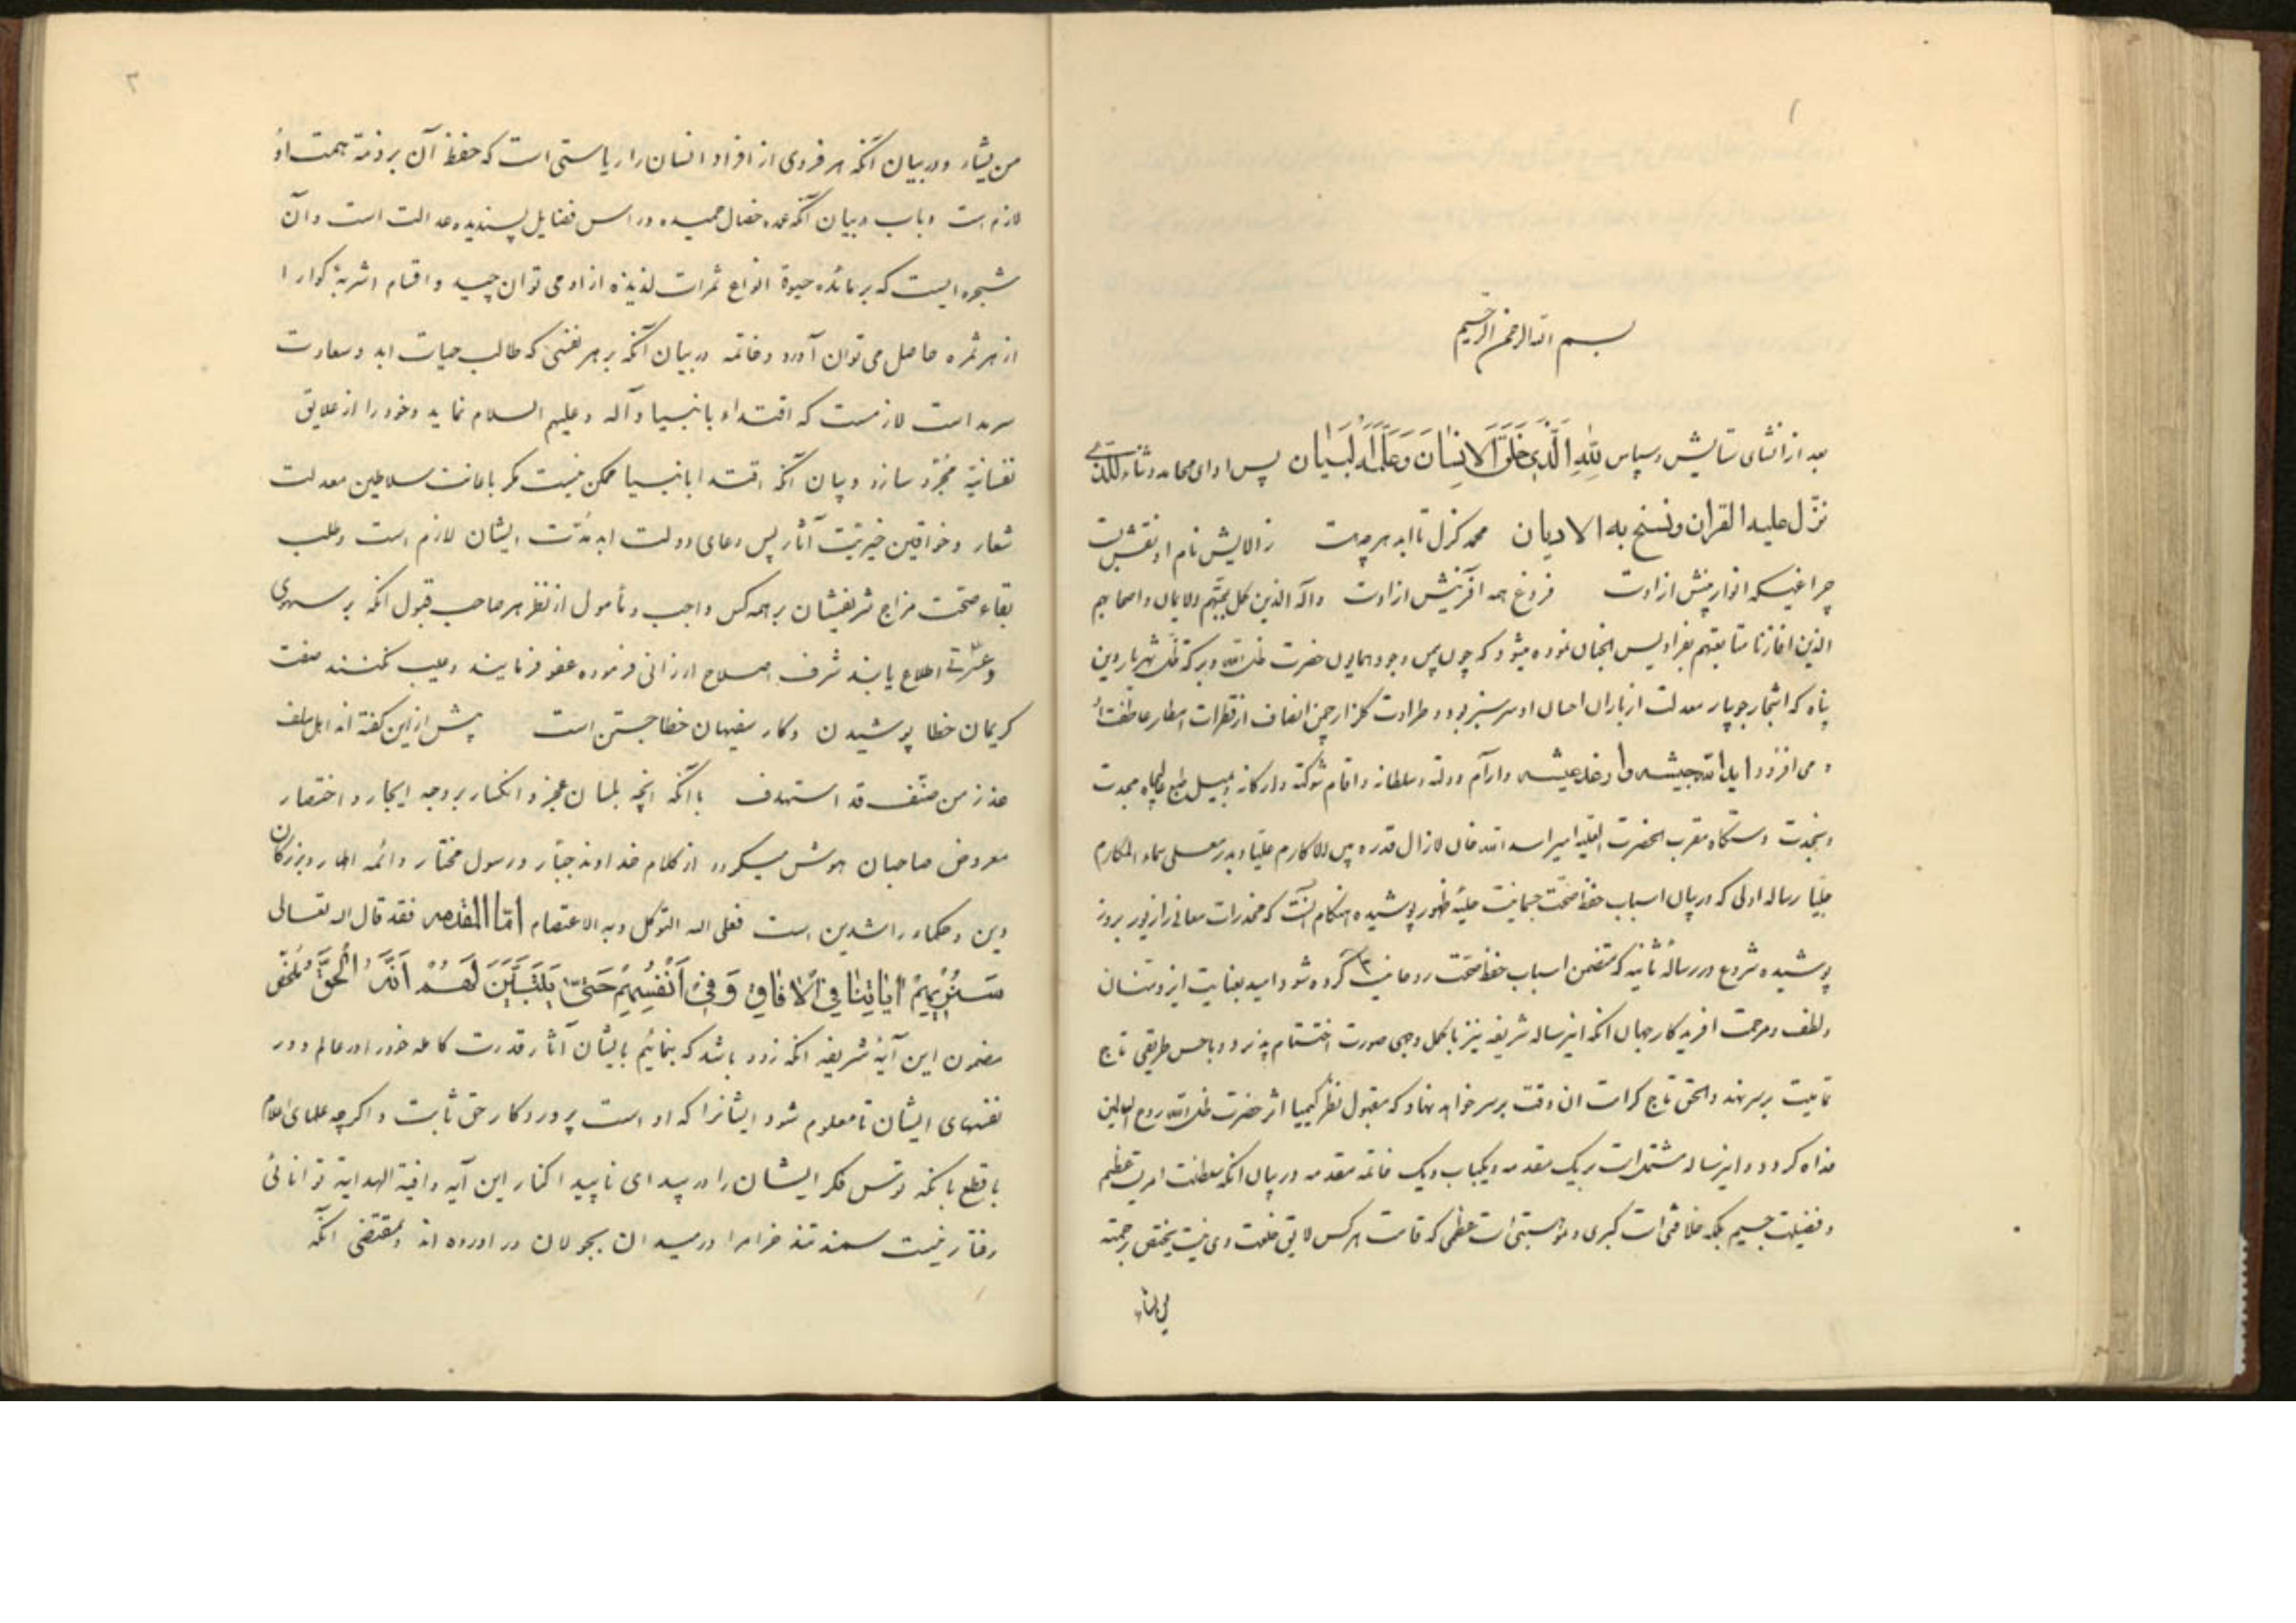 بسم الله الرحمن الرحیم
بعد از انشای ستایش و سپاس لِلّٰهِ الَّذِی خَلَقَ الاِنسَانَ وَعَلَّمَهُ البَیَان پس ادای محامد و ثناء للذی
نزّل علیه القران و نسخ به الادیان محمد کزل تا ابد هر چه هست ز الایش نام او نقش بست
چراغیکه انوار بینش ازاوست فروغ همه آفرینش ازاوست وآله الذین کمل بحبّهم الایمان واصحابهم
الذین بمتابعتهم پس چنان نموده میشود که چون پس وجود همایون حضرت ظل الله شهریار دین
پناه که اشجار جویبار معدلت از باران احسان او سرسبز بود و طراوت گلزار چمن انصاف از قطرات امطار عاطفت
می افزود اید الله جیشه وارغد عیشه وارآم دولته وسلطانه واقام شوکته وارکانه
دستگاه مقرب الحضرت العلیه امیر اسد الله خان لازال قدره علیّا وبدر سماء المکارم
جلیّا رساله اولی که در بیان اسباب حفظ صحّت جسمانیست حلیهٔ ظهور پوشیده هنگام آنست که مخدرات معانی را زیور بروز
پوشیده شروع در رسالهٔ ثانیه که متضمن اسباب حفظ صحّت روحانیست کرده شود امید بعنایت ایزد منّان
ولطف ومرحمت افریدکار جهان انکه اینرساله شریفه نیز باکمل وجهی صورت اختتام پذیرد وباحسن طریقی تاج
تمامیت بر سر نهد والحق تاج کرامت ان وقت بر سر خواهد نهاد که مقبول نظر کیمیا اثر حضرت ظل الله روح العالمین
فداه کردد واینرساله مشتمل است بر یک مقدمه ویکباب ویک خاتمه مقدمه در بیان انکه سلطنت امریست عظیم
وفضیلت جسیم بلکه خلافتی است کبری وموهبتی است عظمی که قامت هر کس لایق خلعت وی نیست یختص برحمته
من یشاء
من یشاء ودر بیان آنکه هر فردی از افراد انسان را ریاستی است که حفظ آن بر ذمّت همت او
لازم است وباب در بیان آنکه عمده خصال حمیده وراس فضایل پسندیده عدالت است وآن
شجره ایست که بر مائده حیوة انواع ثمرات لذیذه ازاو می توان چید واقسام اشربهٔ کوارا
از هر ثمره حاصل می توان آورد وخاتمه در بیان آنکه بر هر نفسی که طالب حیات ابد وسعادت
سرمد است لازمست که اقتداء بانبیا وآله وعلیهم السلام نماید وخود را از علایق
نفسانیّه مجرّد سازد وبیان آنکه اقتدا بانبیا ممکن نیست مکر باعانت سلاطین معدلت
شعار وخواقین خیریّت آثار پس دعای دولت ابد مدّت ایشان لازم است وطلب
بقاء صحّت مزاج شریفشان بر همه کس واجب ومأمول از نظر هر صاحب قبول آنکه بر سهوی
وعثرتی اطلاع یابند شرف اصلاح ارزانی فرموده عفو فرمایند وعیب نکنند صفت
کریمان خطا پوشیدن وکار سفیهان خطا جستن است پیش ازین کفته اند اهل سلف
عذر من صنّف قد استهدف باآنکه آنچه بلسان عجز وانکسار بروجه ایجاز واختصار
معروض صاحبان هوش میکردد از کلام خداوند جبّار ورسول مختار وائمه اطهار وبزرکان
دین وحکماء راشدین است فعلی الله التوکل وبه الاعتصام امّا المقدمه فقد قال الله تعالی
سَنُرِیهِمْ ایَاتِنَا فِی الْافَاقِ وَفِی اَنْفُسِهِمْ حَتّٰی یَتَبَیَّنَ لَهُمْ اَنَّهُ الْحَقُّ ملخّص
مضمون این آیهٔ شریفه آنکه زود باشد که بنمائیم بایشان آثار قدرت کامله خود را در عالم ودر
نفسهای ایشان تا معلوم شود ایشانرا که او است پروردکار حق ثابت واکرچه علمای اعلام
باقطع بانکه توسن فکر ایشان را در بیدای ناپیدا کنار این آیه وافیة الهدایة توانائی
رفتار نیست سمند تند خرامرا در میدان بجولان در اورده اند وبمقتضی آنکه